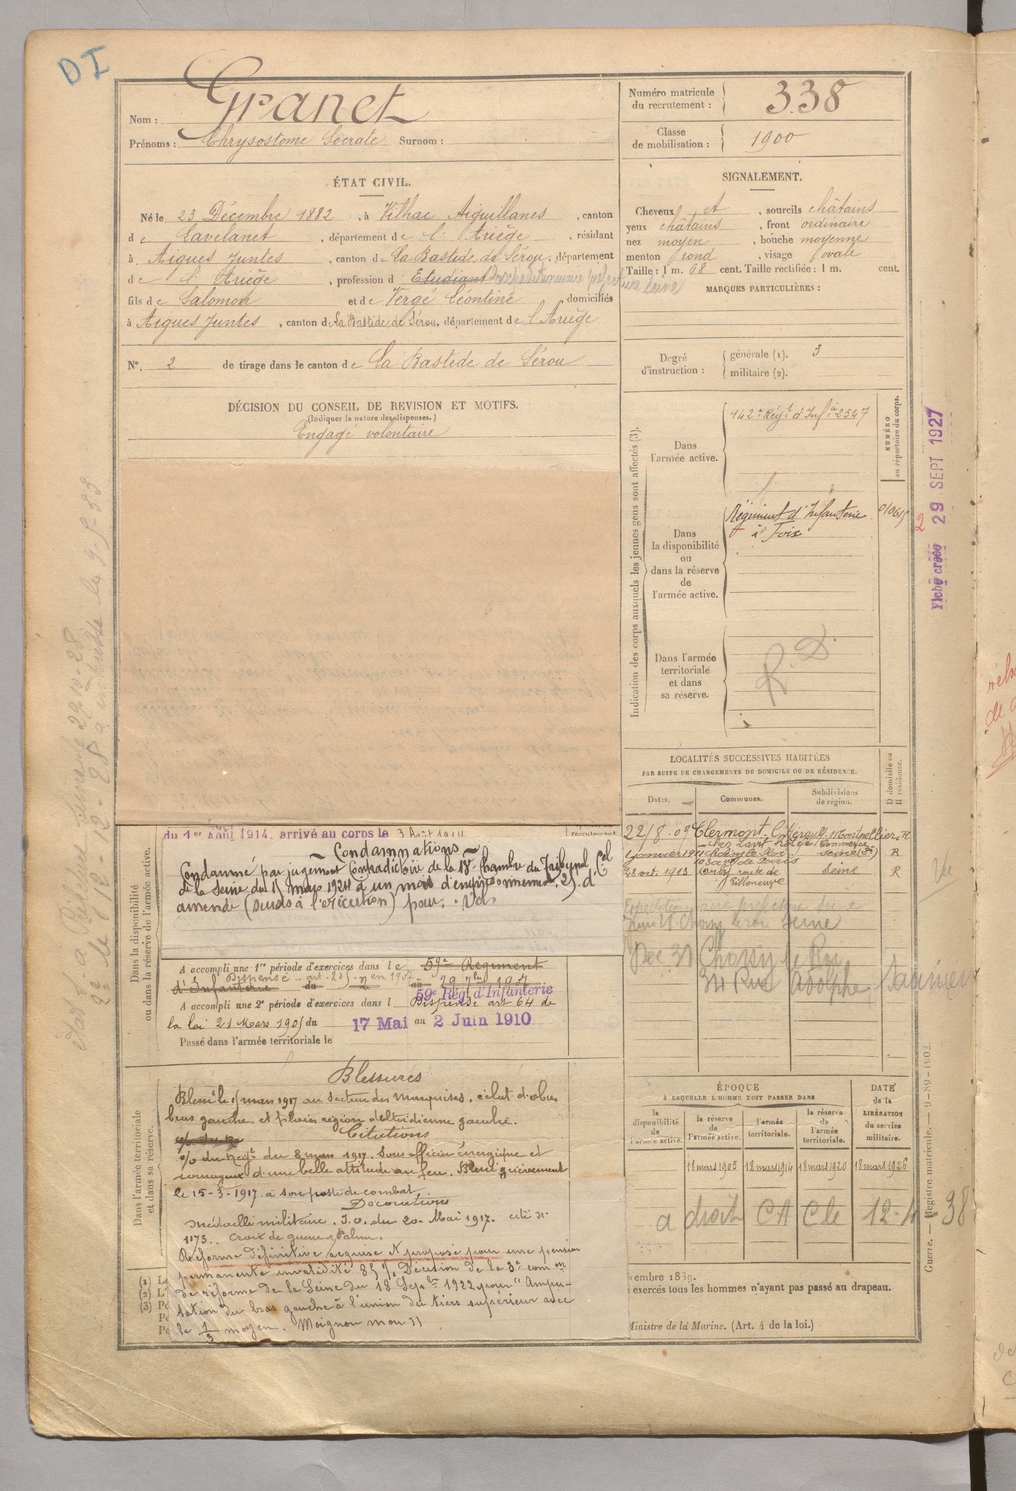 D I
Nom : Granet
Prénoms : Chrysostome Socrate Surnom :
Numéro matricule du recrutement : 338
Classe de mobilisation : 1900
ÉTAT CIVIL.
Né le 23 Décembre 1882, à Vilhac Aiguillanes, canton
de Lavelanet, département de l'Ariège, résidant
à Aigues Juntes, canton de La Bastide de Sérou, département
de l'Ariège, profession d' Etudiant
fils de Salomon et de Vergé Léontine domiciliés
à Aigues Juntes, canton de La Bastide de Sérou, département de l'Ariège
N° 2 de tirage dans le canton de La Bastide de Sérou
DÉCISION DU CONSEIL DE REVISION ET MOTIFS.
(Indiquer la nature des dispenses.)
Engagé volontaire
SIGNALEMENT.
Cheveux et, sourcils châtains
yeux châtains, front ordinaire
nez moyen, bouche moyenne
menton rond, visage ovale
Taille : 1 m. 68 cent. Taille rectifiée : 1 m. cent.
MARQUES PARTICULIÈRES :
Degré d'instruction : générale (1). 3
militaire (2).
Indication des corps auxquels les jeunes gens sont affectés (3).
NUMÉRO au répertoire du corps.
Dans l'armée active.
142e Régt d'Infie 2547
Dans la disponibilité ou dans la réserve de l'armée active.
Régiment d'Infanterie
à Foix
Dans l'armée territoriale et dans sa réserve.
R. D.
Fiche créée 29 SEPT 1927
LOCALITÉS SUCCESSIVES HABITÉES
PAR SUITE DE CHANGEMENTS DE DOMICILE OU DE RÉSIDENCE.
Dates. Communes. Subdivisions de région. D domicile ou R résidence.
22/8-09 Clermont-l'Hérault Montpellier R
Janvier 1911
21 oct. 1913 Orly route de Villeneuve Seine R
Dec 30 Choisy le Roi
34 Rue Adolphe
Dans la disponibilité ou dans la réserve de l'armée active.
du 1er Août 1914, arrivé au corps le 3 Août 1914
Condamnations
Condamné par jugement Contradictoire de la 18e Chambre du Tribunal Cel
de la Seine du 15 mars 1924 à un mois d'emprisonnement, 25f d'
amende (sursis à l'exécution) pour : Vol
A accompli une 1re période d'exercices dans le 59e Régiment
d'Infanterie du au
59e Rég. d'Infanterie
A accompli une 2e période d'exercices dans l Dispensé art 64 de
la loi 21 Mars 1905 du 17 Mai au 2 Juin 1910
Passé dans l'armée territoriale le
Dans l'armée territoriale et dans sa réserve.
Blessures
Blessé le 15 mars 1917 au secteur des Marquises, éclat d'obus
bras gauche et plaie région deltoïdienne gauche.
Citations
O/ du Régt du 8 mars 1917. Sous officier énergique et
courageux d'une belle attitude au feu. Blessé grièvement
le 15-3-1917 à son poste de combat
Décorations
Médaille militaire. J.O. du 20 Mai 1917.
Croix de guerre Palme.
Réforme définitive acquise et proposé pour une pension
permanente invalidité 85% Décision de la 3e comon
de réforme de la Seine du 18 Sepbre 1922 pour "Ampu-
tation du bras gauche à l'union du tiers supérieur avec
le 1/3 moyen. Moignon
ÉPOQUE
À LAQUELLE L'HOMME DOIT PASSER DANS
la disponibilité de l'armée active. la réserve de l'armée active. l'armée territoriale. la réserve de l'armée territoriale. DATE de la LIBÉRATION du service militaire.
18 mars 1905 18 mars 1914 18 mars 1920 18 mars 1926
a droit CA Cle 12-4-38
embre 1889.
exercés tous les hommes n'ayant pas passé au drapeau.
Ministre de la Marine. (Art. 4 de la loi.)
(1) L
(2) L
(3) P
Guerre. — Registre matricule. — 9-89-1903.